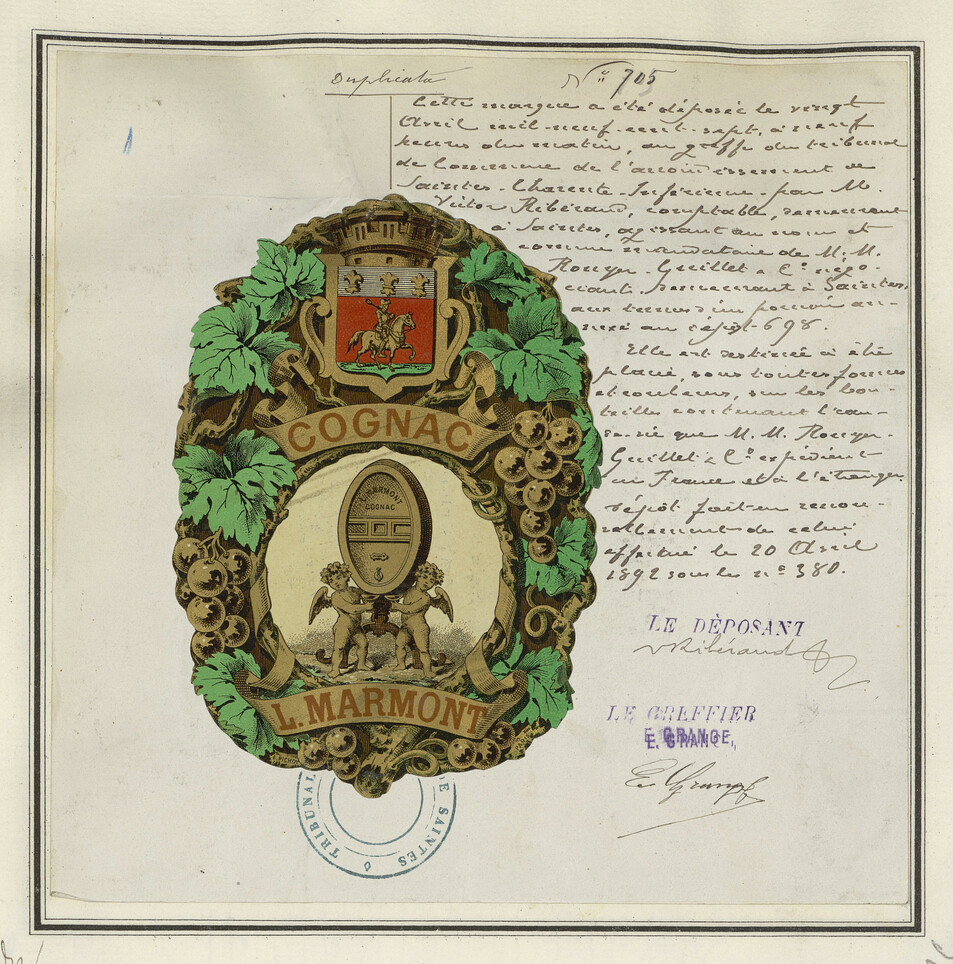 Duplicata
N° 705
Cette marque a été déposée le vingt
Avril mil-neuf-cent-sept, à neuf
heures du matin, au greffe du tribunal
de Commerce de l'arrondissement de
Saintes-Charente-Inférieure-par M.
Victor Ribéraud, comptable, demeurant
à Saintes, agissant au nom et
comme mandataire de M.M.
Rouyer-Guillet & Cie négo-
ciants, demeurant à Saintes,
aux termes d'un pouvoir an-
nexé au dépôt 698.
Elle est destinée à être
placée, sous toutes formes
et couleurs, sur les bou-
teilles contenant l'eau-
de-vie que M.M. Rouyer-
Guillet & Cie expédient
en France et à l'étranger.
Dépôt fait en renou-
vellement de celui
effectué le 20 Avril
1892 sous le n° 380.
COGNAC
L. MARMONT
COGNAC
L. MARMONT
LE DÉPOSANT
V Ribéraud
LE GREFFIER
E. GRANGE,
E. Grange
TRIBUNAL DE SAINTES